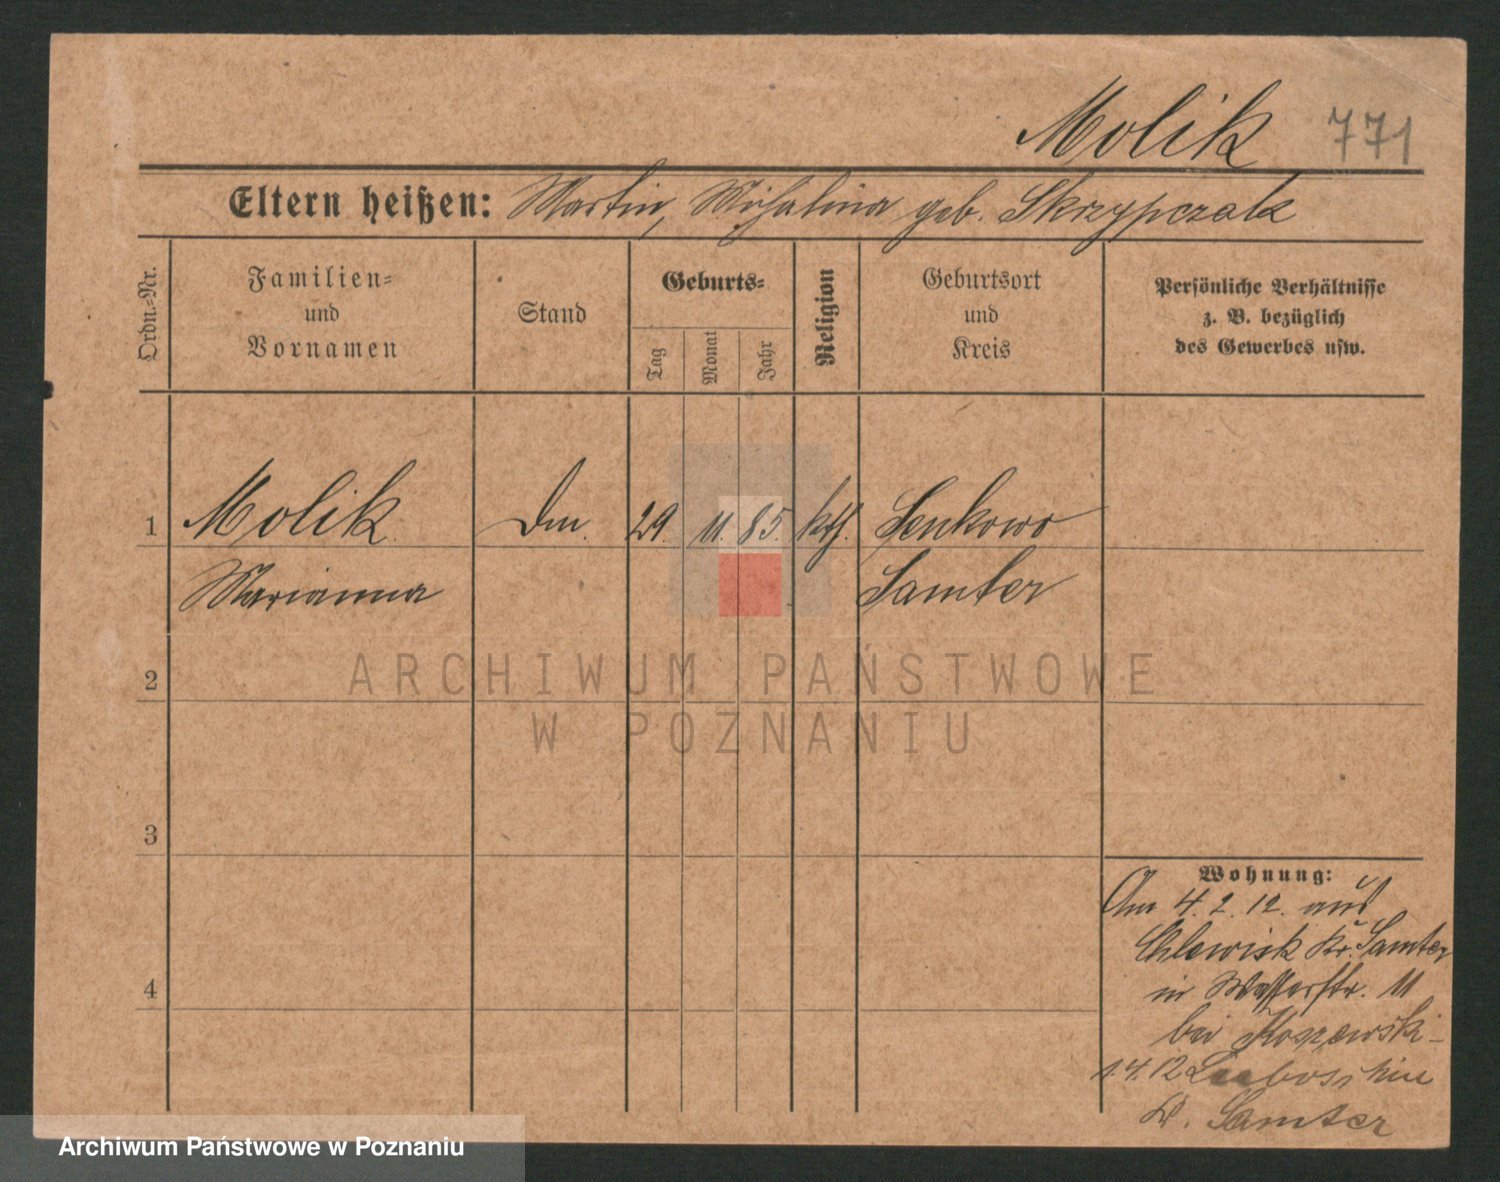 Molik 771
Eltern heißen: Martin, Michalina geb. Skrzypczak
Ordn.-Nr.
Familien-
und
Vornamen
Stand
Geburts-
Tag
Monat
Jahr
Religion
Geburtsort
und
Kreis
Persönliche Verhältnisse
z. B. bezüglich
des Gewerbes usw.
1 Molik 29. 11. 85. kth. Senkowo
Marianna Samter
2
3
4
Wohnung:
Am 4. 2. 12. aus
Chlewisk Kr. Samter
in Wasserstr. 11
bei Koszewski
1. 4. 12
K. Samter
ARCHIWUM PAŃSTWOWE
W POZNANIU
Archiwum Państwowe w Poznaniu